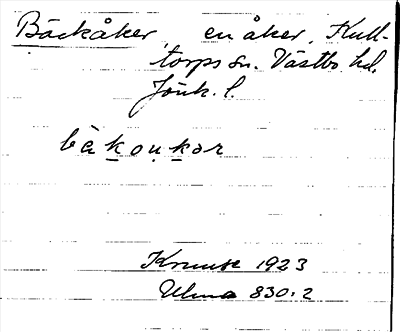 Bäckåker, en åker, Kull-
torps sn. Västbo hd.
Jönk. l.
bäkoukər
Krause 1923
Ulma 830:2